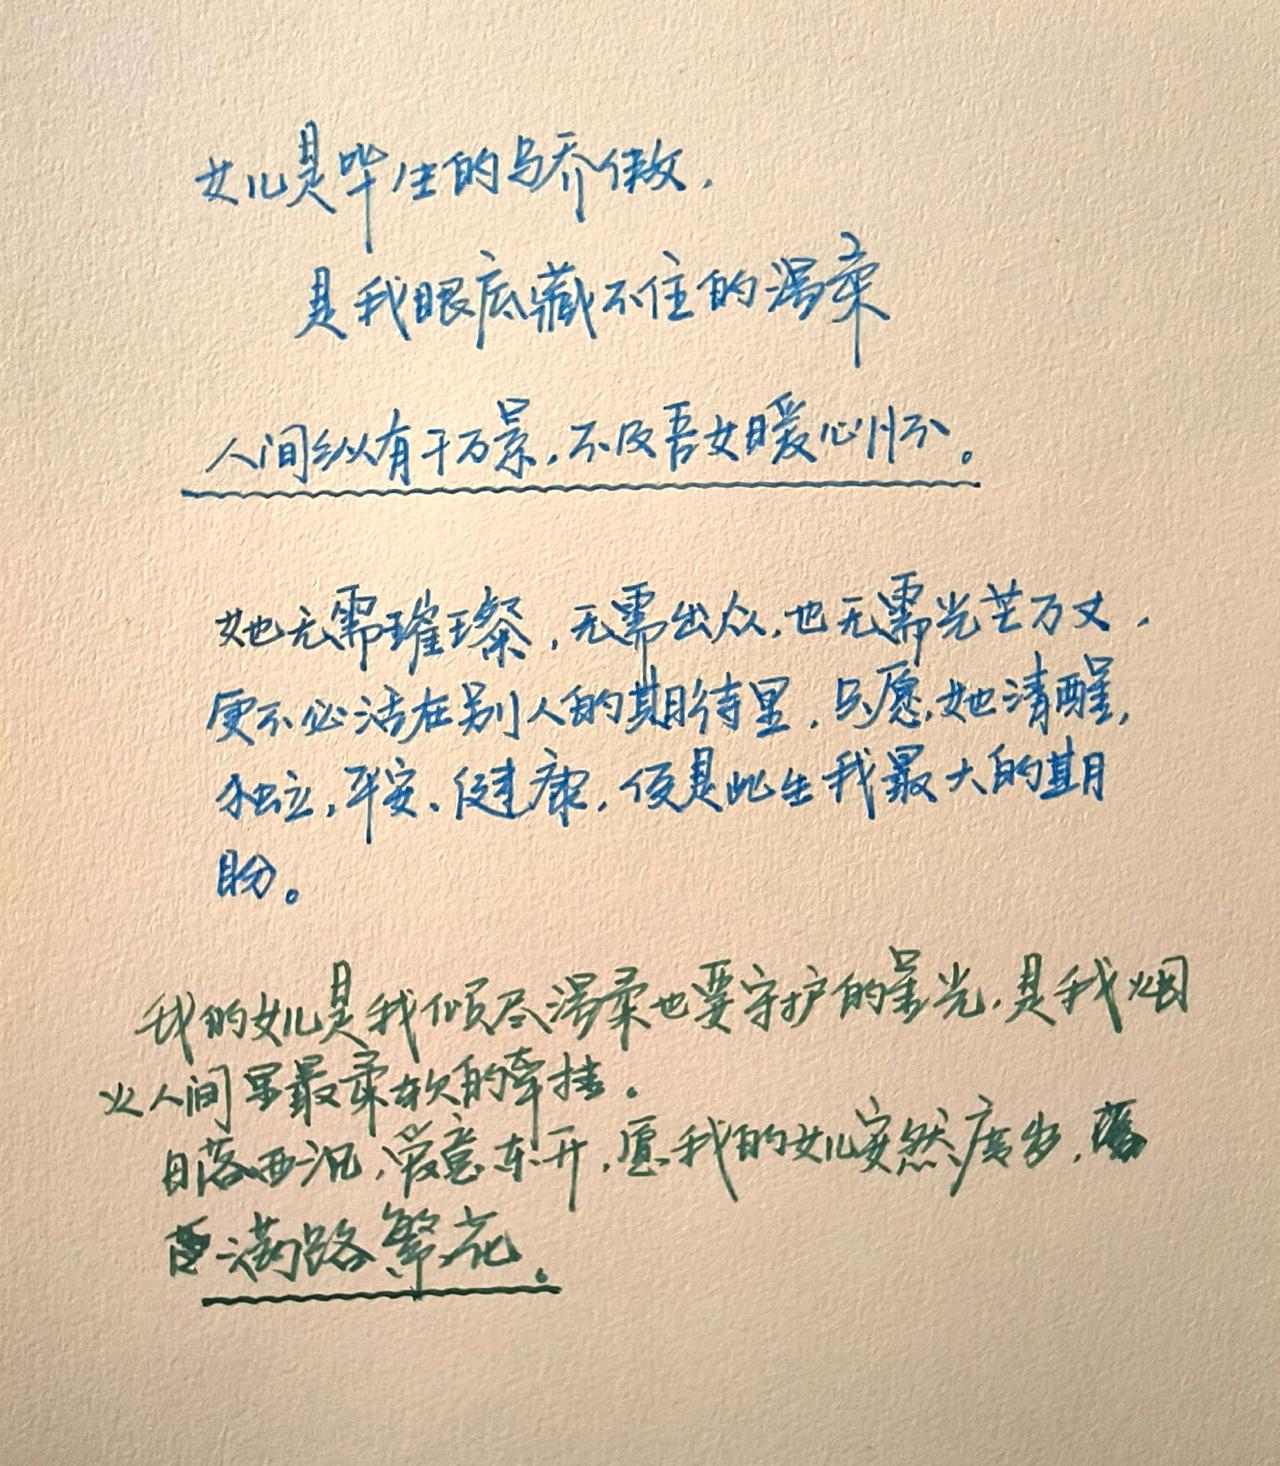 女儿是毕生的骄傲，
是我眼底藏不住的温柔
人间纵有千万景，不及吾女暖心怀。
她无需璀璨，无需出众，也无需光芒万丈，
更不必活在别人的期待里，只愿她清醒，
独立，平安、健康，便是此生我最大的期
盼。
我的女儿是我倾尽温柔也要守护的星光，是我烟
火人间里最柔软的牵挂。
日落西沉，爱意东升，愿我的女儿安然度岁，
满路繁花。